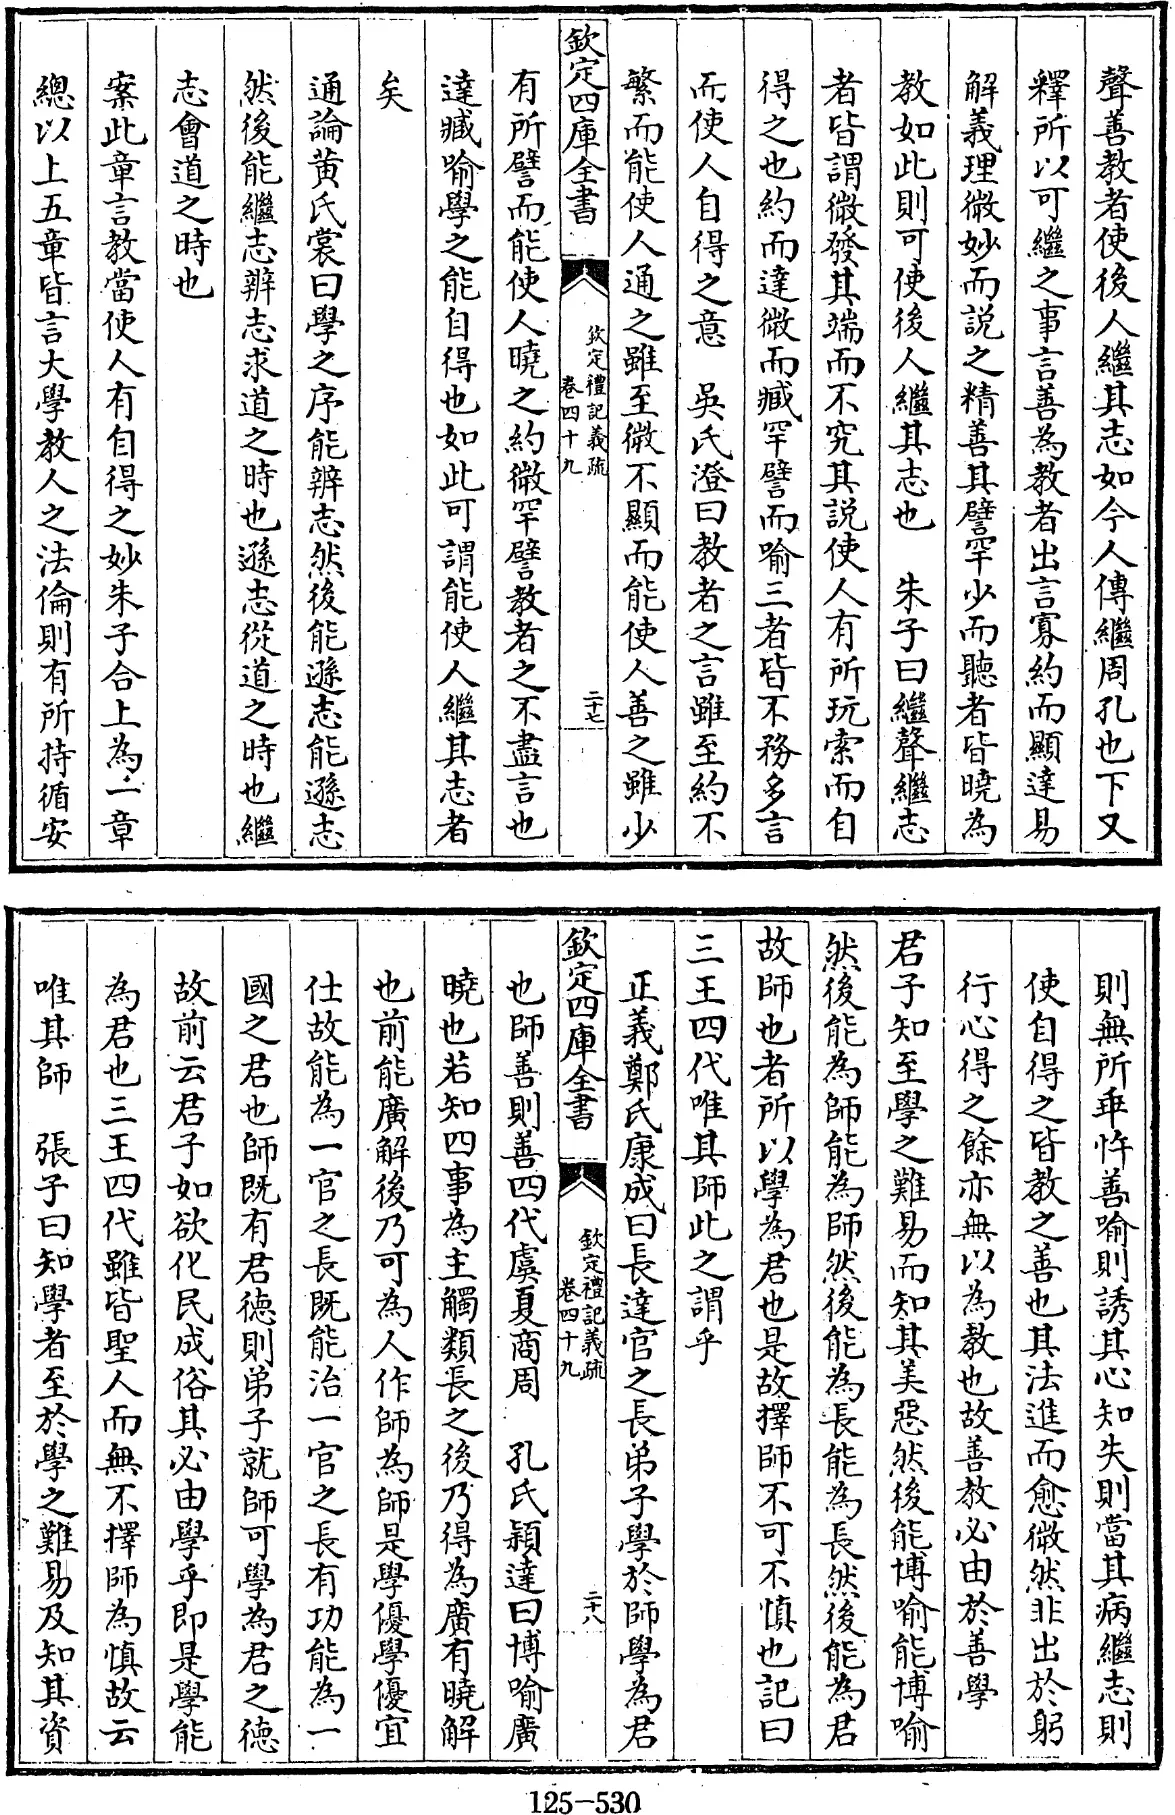 聲善教者使後人繼其志如今人傳繼周孔也下又
釋所以可繼之事言善為教者出言寡約而顯達易
解義理微妙而說之精善其譬罕少而聽者皆曉為
教如此則可使後人繼其志也　朱子曰繼聲繼志
者皆謂微發其端而不究其說使人有所玩索而自
得之也約而達微而臧罕譬而喻三者皆不務多言
而使人自得之意　吳氏澄曰教者之言雖至約不
繁而能使人通之雖至微不顯而能使人善之雖少
欽定四庫全書　欽定禮記義疏卷四十九　二十七
有所譬而能使人曉之約微罕譬教者之不盡言也
達臧喻學之能自得也如此可謂能使人繼其志者
矣
通論黃氏裳曰學之序能辨志然後能遜志能遜志
然後能繼志辨志求道之時也遜志從道之時也繼
志會道之時也
案此章言教當使人有自得之妙朱子合上為一章
總以上五章皆言大學教人之法倫則有所持循安
則無所乖忤善喻則誘其心知失則當其病繼志則
使自得之皆教之善也其法進而愈微然非出於躬
行心得之餘亦無以為教也故善教必由於善學
君子知至學之難易而知其美惡然後能博喻能博喻
然後能為師能為師然後能為長能為長然後能為君
故師也者所以學為君也是故擇師不可不慎也記曰
三王四代唯其師此之謂乎
正義鄭氏康成曰長達官之長弟子學於師學為君
欽定四庫全書　欽定禮記義疏卷四十九　二十八
也師善則善四代虞夏商周　孔氏穎達曰博喻廣
曉也若知四事為主觸類長之後乃得為廣有曉解
也前能廣解後乃可為人作師為師是學優學優宜
仕故能為一官之長既能治一官之長有功能為一
國之君也師既有君德則弟子就師可學為君之德
故前云君子如欲化民成俗其必由學乎即是學能
為君也三王四代雖皆聖人而無不擇師為慎故云
唯其師　張子曰知學者至於學之難易及知其資
125-530